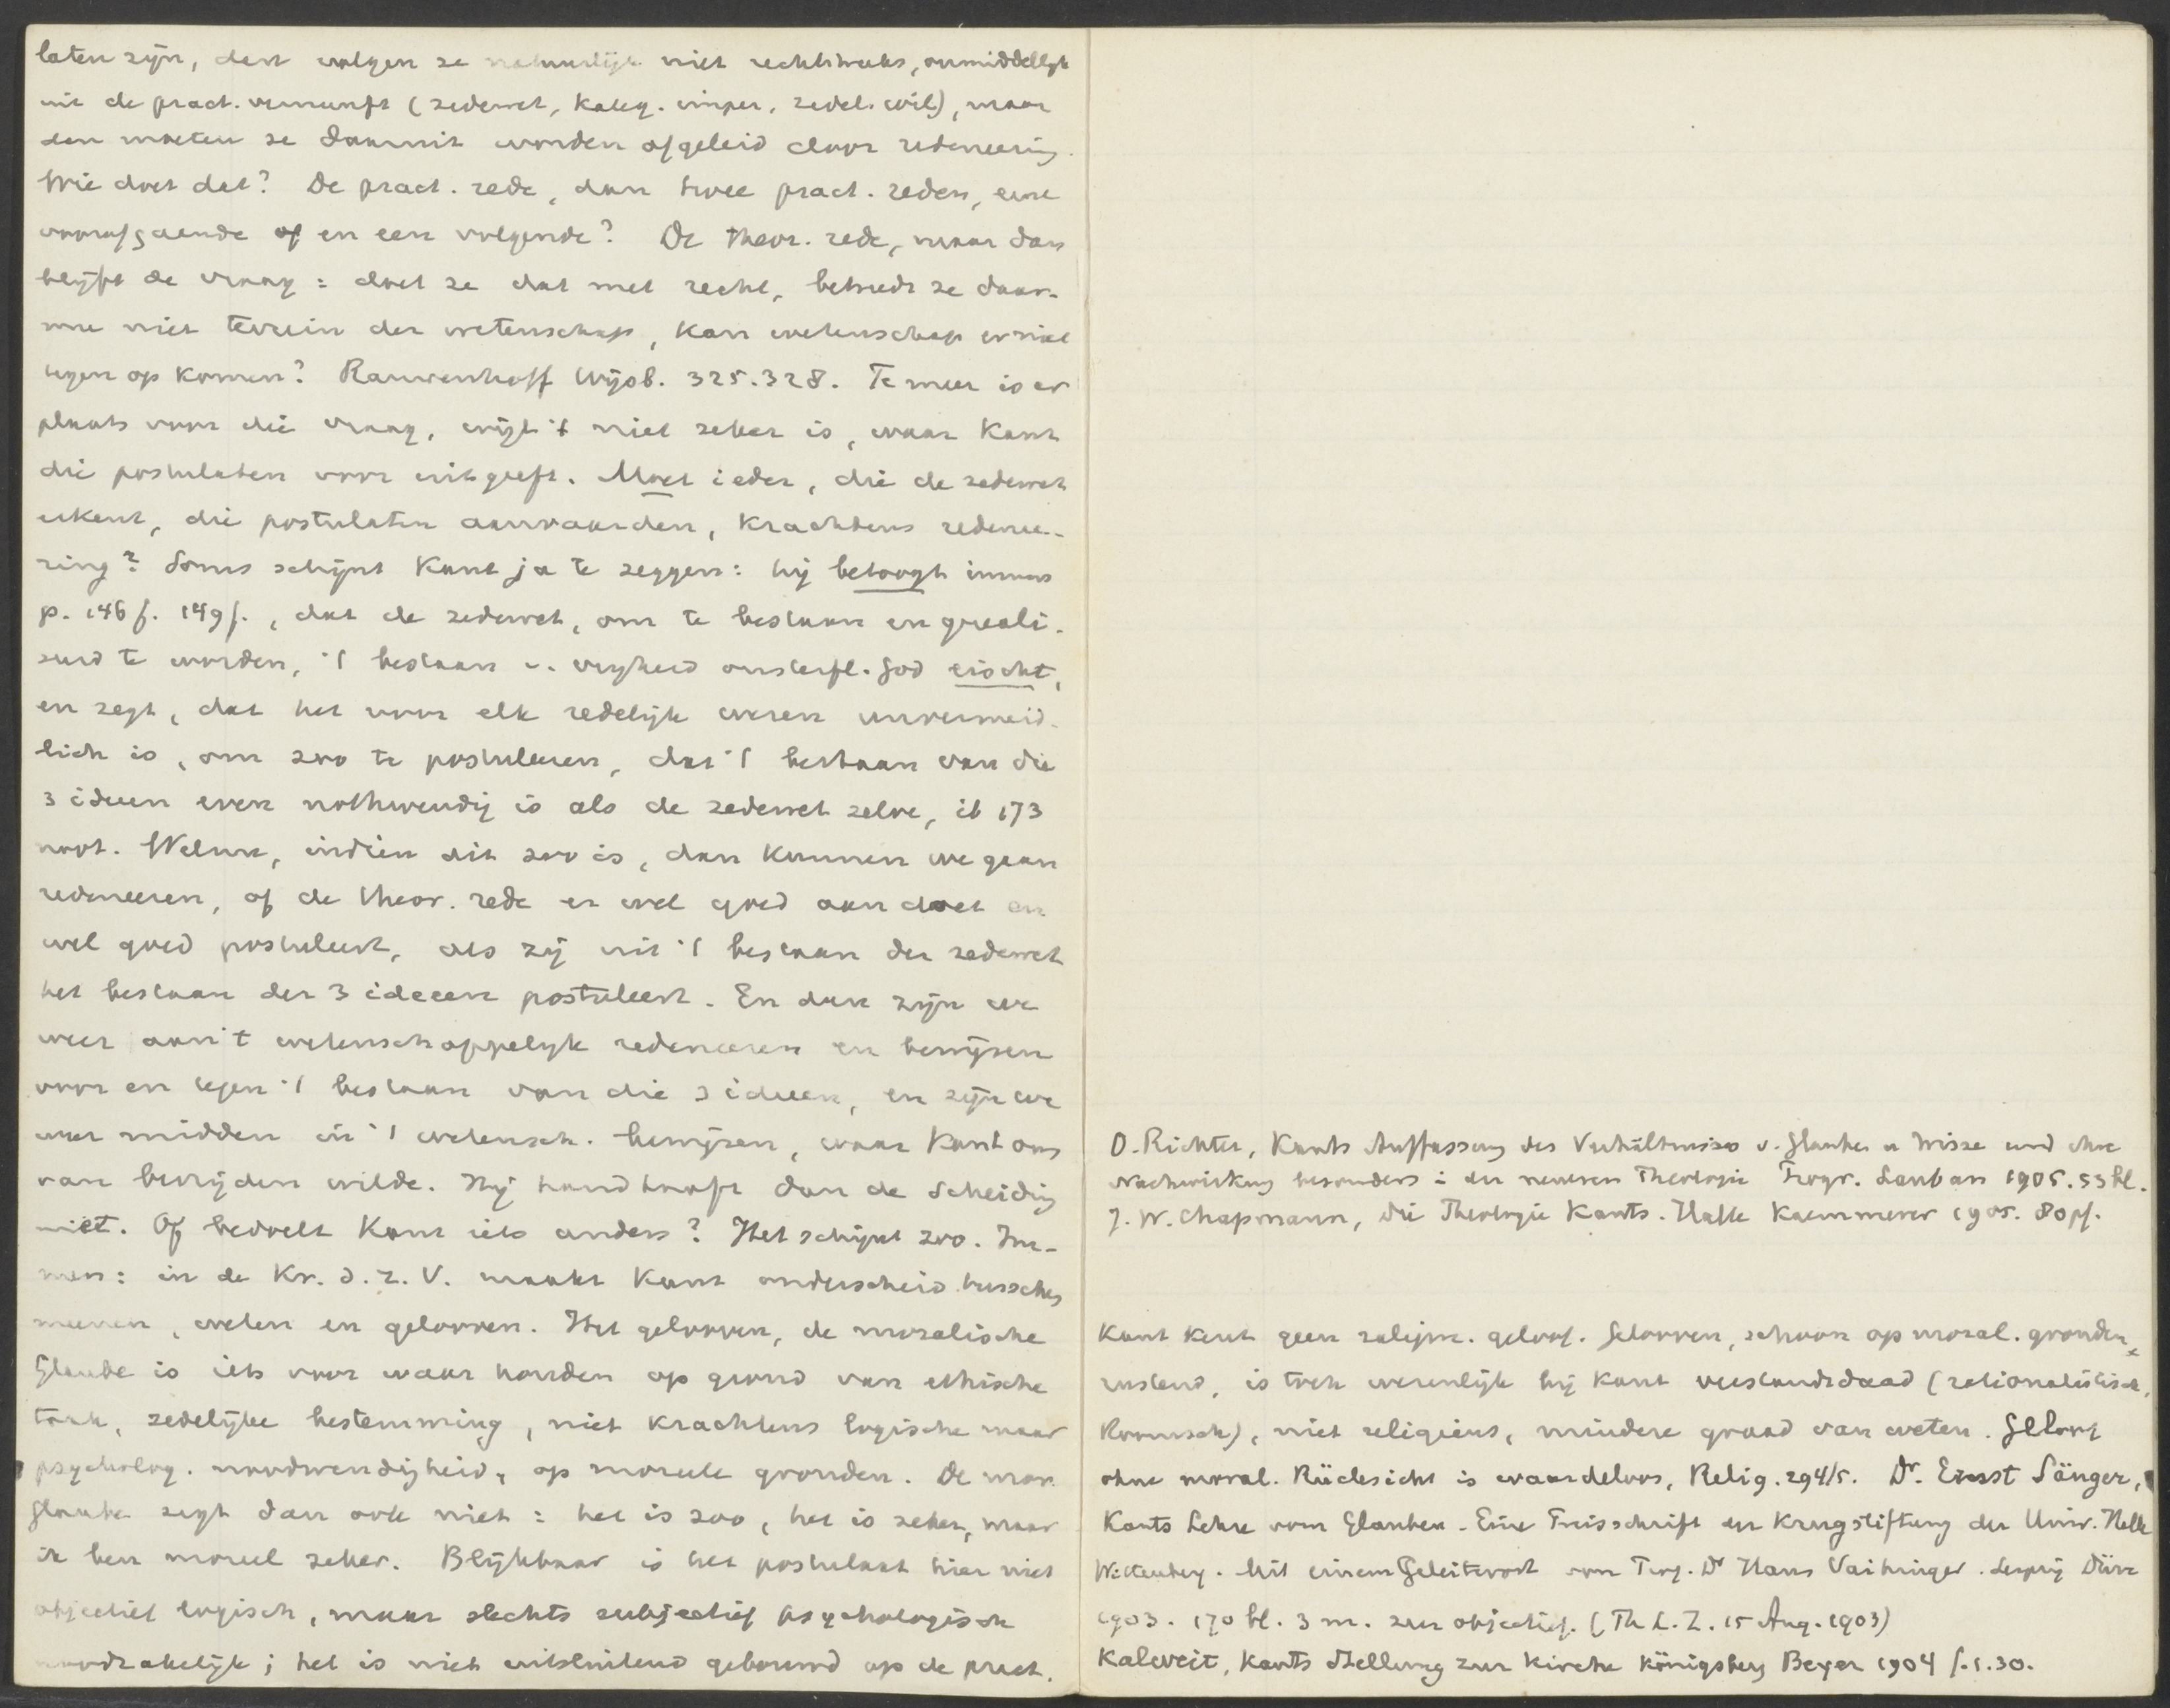 laten zijn, dan volgen ze natuurlijk niet rechtstreeks, onmiddellijk
uit de pract. vernunft (zedewet, Kateg. imper. zedel. wil), maar
dan moeten ze daaruit worden afgeleid door redeneering.
Wie doet dat? De pract. rede, dan twee pract. reden, eene
voorafgaande of en een volgende? De theor. rede, maar dan
blijft de vraag: doet ze dat met recht, betreedt ze daar-
mee niet terrein der wetenschap, kan wetenschap er niet
tegen op komen? Rauwenhoff Wijsb. 325.328. Te meer is er
plaats voor die vraag, wijl 't niet zeker is, waar Kant
die postulaten voor uitgeeft. Moet ieder, die de zedewet
erkent, die postulaten aanvaarden, krachtens redenee-
ring? Soms schijnt Kant ja te zeggen: hij betoogt immers
p. 146 f. 149 f., dat de zedewet, om te bestaan en gereali-
seerd te worden, 't bestaan v. vrijheid onsterfl. God eischt,
en zegt, dat het voor elk redelijk wezen unvermeid-
lich is, om zoo te postuleeren, dat 't bestaan van die
3 ideeen even nothwendig is als de zedewet zelve, ib 173
noot. Welnu, indien dit zoo is, dan kunnen we gaan
redeneeren, of de theor. rede er wel goed aan doet en
wel goed postuleert, als zij uit 't bestaan der zedewet
het bestaan der 3 ideeen postuleert. En dan zijn we
weer aan 't wetenschappelijk redeneeren en bewijzen
voor en tegen 't bestaan van die 3 ideeen, en zijn we
weer midden in 't wetensch. bewijzen, waar Kant ons
van bevrijden wilde. Hij handhaaft dan de scheiding
niet. Of bedoelt Kant iets anders? Het schijnt zoo. Im-
mers: in de Kr. d. r. V. maakt Kant onderscheid tusschen
meenen, weten en gelooven. Het gelooven, de moralische
Glaube is iets voor waar houden op grond van ethische
taak, zedelijke bestemming, niet krachtens logische maar
psycholog. noodwendigheid, op moreele gronden. De mor.
Glaube zegt dan ook niet: het is zoo, het is zeker, maar
ik ben moreel zeker. Blijkbaar is het postulaat hier niet
objectief logisch, maar slechts subjectief psychologisch
noodzakelijk; het is niet uitsluitend gebouwd op de pract.
O. Richter, Kants Auffassung des Verhältnisses v. Glauben u Wissen und ihre
Nachwirkung besonders i der neueren Theologie Progr. Lauban 1905. 53 bl.
J. W. Chapmann, die Theologie Kants. Halle Kaemmerer 1905. 80 pf.
Kant kent geen religieus. geloof. Gelooven, schoon op moral. gronden
rustend, is toch wezenlijk bij Kant verstandsdaad (rationalistisch,
Roomsch), niet religieus, mindere graad van weten. Geloof
ohne moral. Rücksicht is waardeloos, Relig. 294/5. Dr. Ernst Sänger,
Kants Lehre vom Glauben. Eine Preisschrift der Krugstiftung der Univ. Halle
Wittenberg. Mit einem Geleitwort von Prof. Dr Hans Vaihinger. Leipzig Dürr
1903. 170 bl. 3 m. zeer objectief. (Th L. Z. 15 Aug. 1903)
Kalweit, Kants Stellung zur Kirche Königsberg Beyer 1904 f. 1.30.